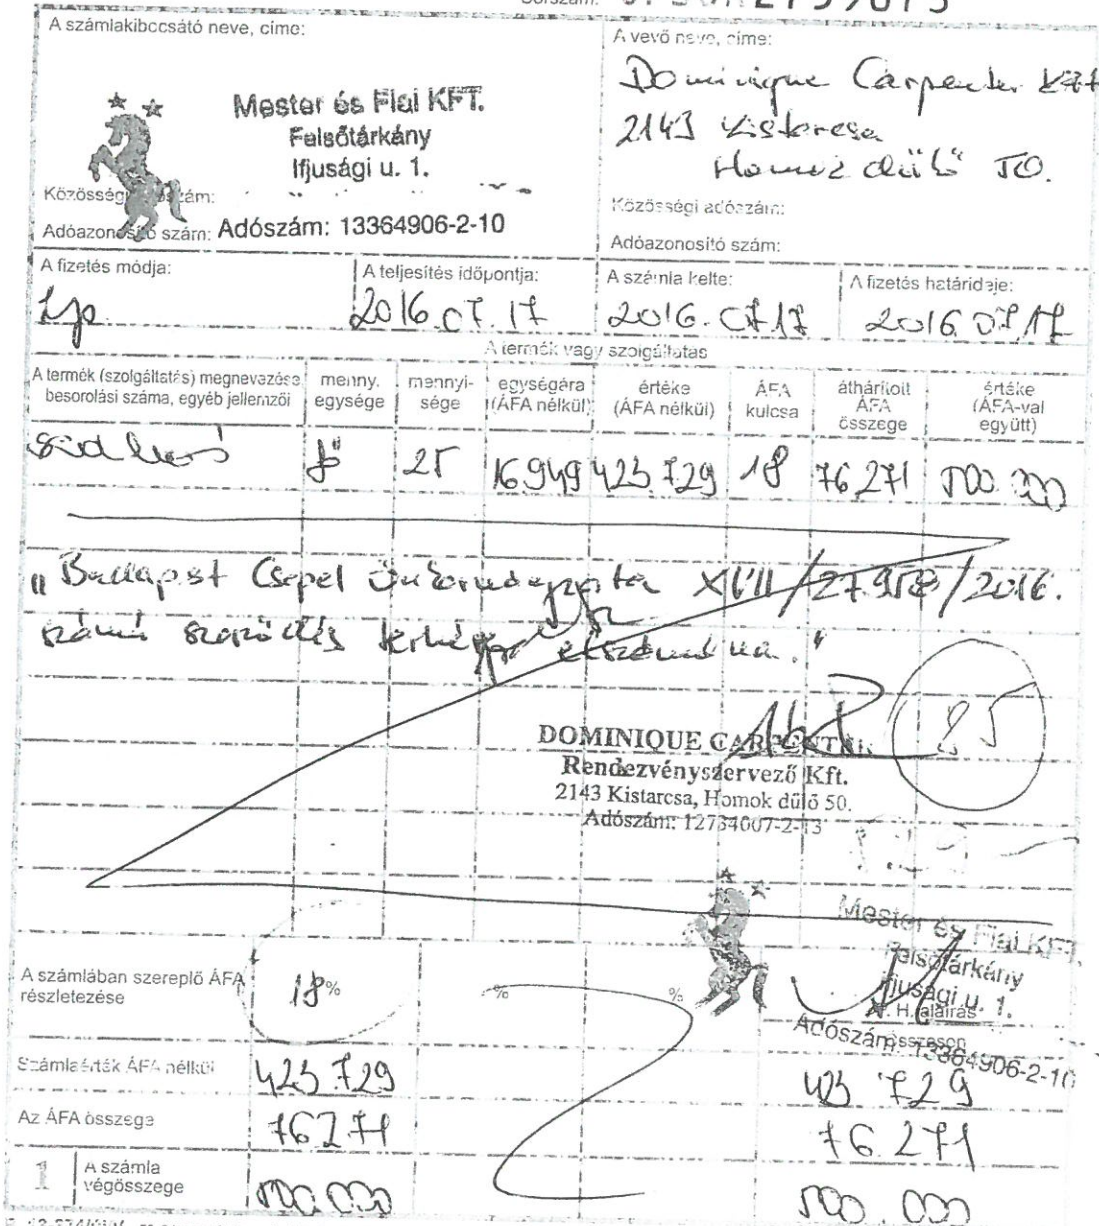 A számlakibocsátó neve, címe:
Mester és Fiai KFT.
Felsőtárkány
Ifjusági u. 1.
Adóazonosító szám: Adószám: 13364906-2-10
A vevő neve, címe:
Dominique Carpenter Kft
2143 Kistarcsa
Homok dűlő 50.
Közösségi adószám:
Adóazonosító szám:
A fizetés módja:
A teljesítés időpontja:
A számla kelte:
A fizetés határideje:
kp
2016.07.17
2016.07.17
2016.07.17
A termék vagy szolgáltatás
A termék (szolgáltatás) megnevezése besorolási száma, egyéb jellemzői
menny. egysége
mennyi-sége
egységára (ÁFA nélkül)
értéke (ÁFA nélkül)
ÁFA kulcsa
áthárított ÁFA összege
értéke (ÁFA-val együtt)
szállás fő 25 16949 423.729 18 76.271 500.000
"Budapest Csepel Önkormányzata XVII/27.958/2016.
számú szerződés terhére elszámolva."
DOMINIQUE CARPENTER
Rendezvényszervező Kft.
2143 Kistarcsa, Homok dűlő 50.
Adószám: 12734007-2-13
25
Mester és Fiai KFT.
Felsőtárkány
Ifjusági u. 1.
P. H. aláírás
Adószám: 13364906-2-10
összesen
A számlában szereplő ÁFA részletezése
18 %
%
%
Számlaérték ÁFA nélkül 423.729 423.729
Az ÁFA összege 76.271 76.271
1 A számla végösszege 500.000 500.000